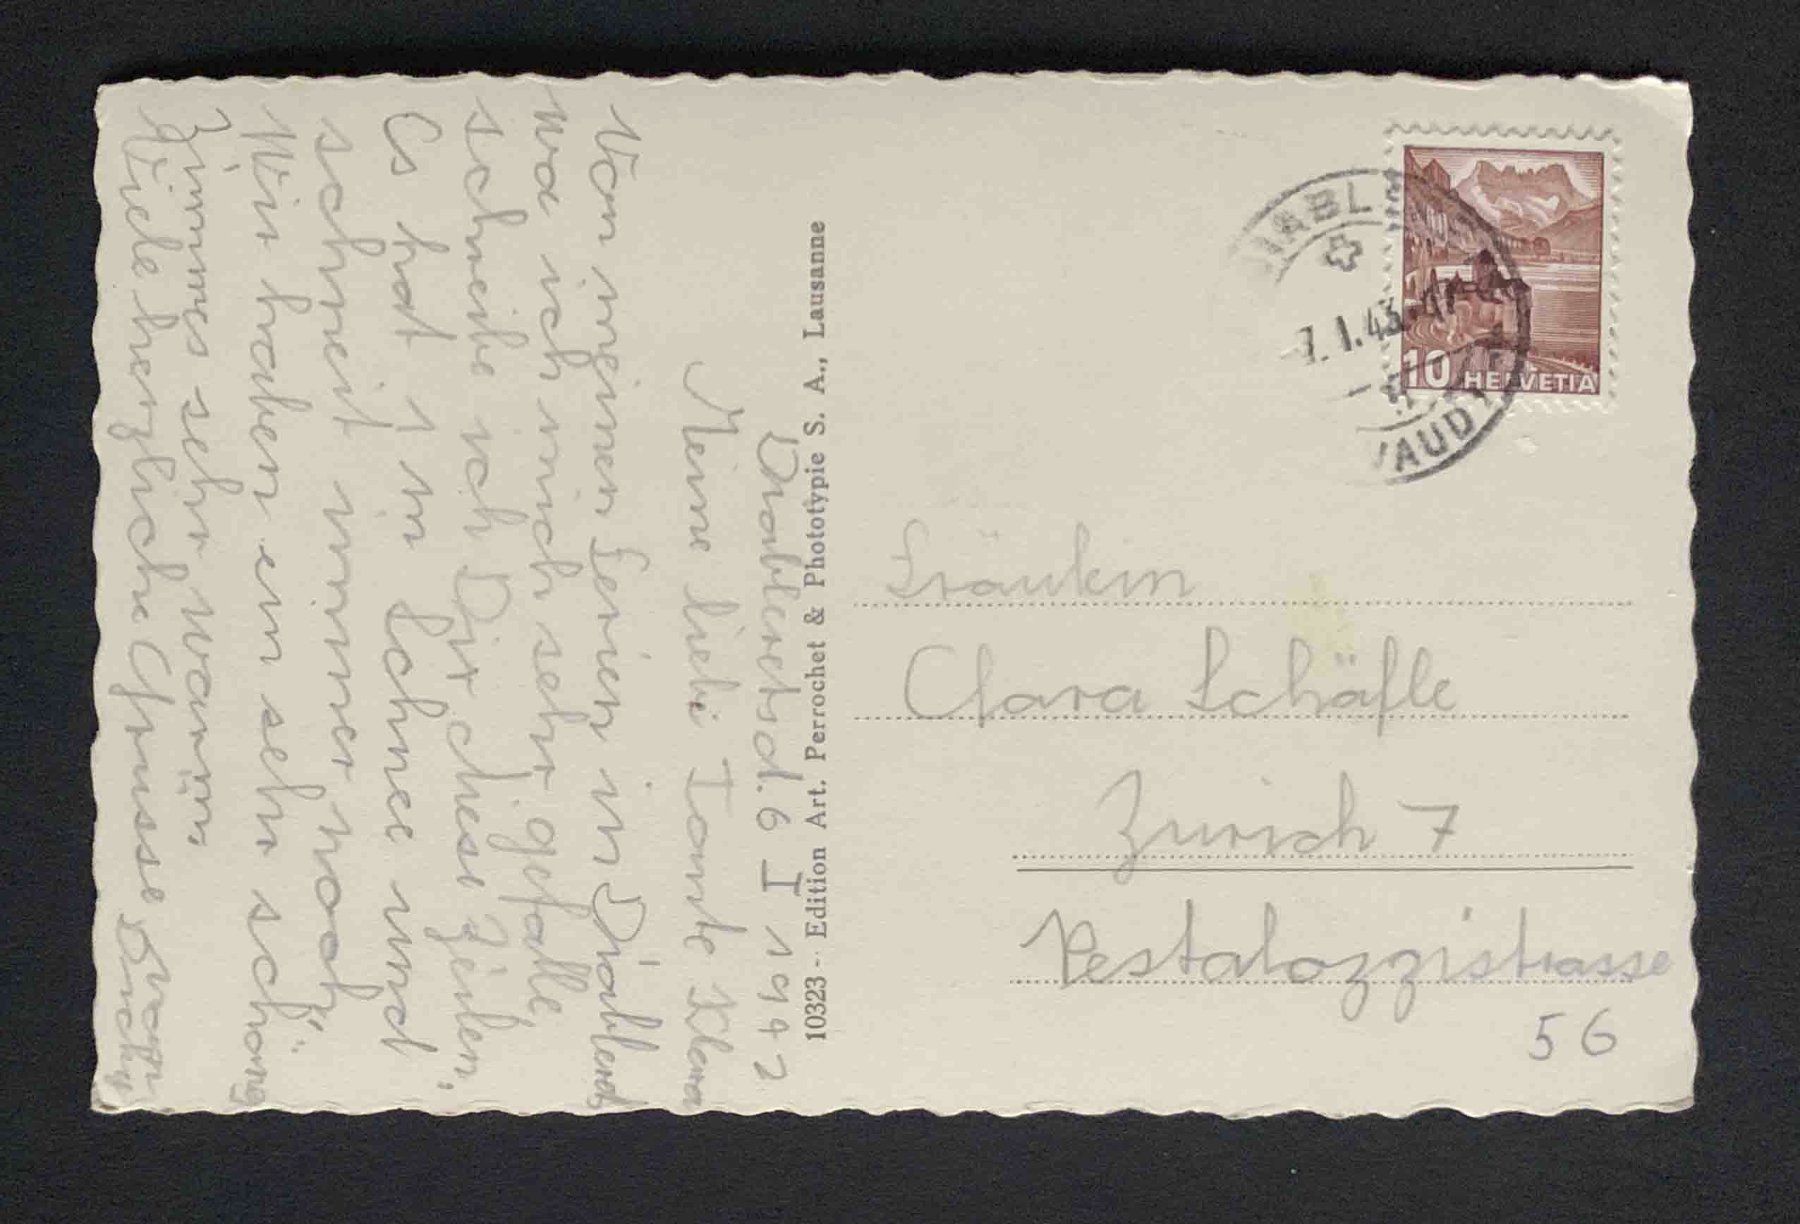 Diableretsd. 6 I 1942
Meine liebe Tante Klara
Von meinen Ferien in Diableret
wo ich mich sehr gefalle,
schreibe ich Dir diese Zeilen,
Es hat 1 m Schnee und
schneit immer noch"
Wir haben ein sehr schöng
Zimmer sehr warm,
Viele herzliche Grüsse von
10323 - Edition Art. Perrochet & Phototypie S. A., Lausanne
DIABL
7.1.43
VAUD
10 HELVETIA
Fräulein
Clara Schäfle
Zürich 7
Pestalozzistrasse
56